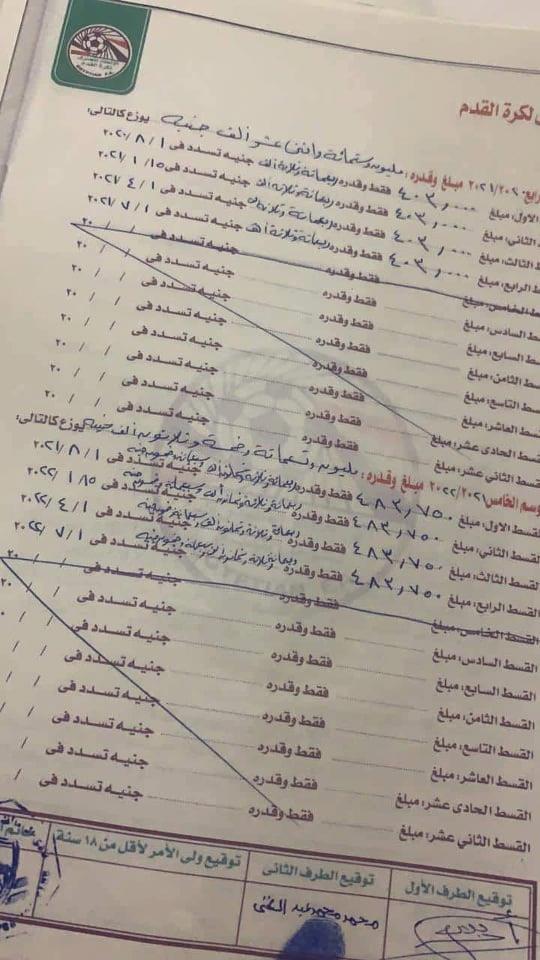 الاتحاد المصرى
لكرة القدم
EGYPTIAN F.A.
لكرة القدم
٢٠٢١/٢٠٢٠ مبلغ وقدره: مليون وستمائة واثنى عشر ألف جنيه يوزع كالتالى:
الاول، مبلغ ٤٠٣,٠٠٠ فقط وقدره اربعمائة وثلاثة الف جنيه تسدد فى ٢٠٢٠/٨/١
الثانى، مبلغ ٤٠٣,٠٠٠ فقط وقدره اربعمائة وثلاثة الف جنيه تسدد فى ٢٠٢١/١/٥
الثالث، مبلغ ٤٠٣,٠٠٠ فقط وقدره اربعمائة وثلاثة الف جنيه تسدد فى ٢٠٢١/٤/١
ط الرابع، مبلغ ٤٠٣,٠٠٠ فقط وقدره اربعمائة وثلاثة الف جنيه تسدد فى ٢٠٢١/٧/١
ط الخامس، مبلغ فقط وقدره جنيه تسدد فى / / ٢٠
ط السادس، مبلغ فقط وقدره جنيه تسدد فى / / ٢٠
ط السابع، مبلغ فقط وقدره جنيه تسدد فى / / ٢٠
ط الثامن، مبلغ فقط وقدره جنيه تسدد فى / / ٢٠
ط التاسع، مبلغ فقط وقدره جنيه تسدد فى / / ٢٠
ط العاشر، مبلغ فقط وقدره جنيه تسدد فى / / ٢٠
ط الحادى عشر، مبلغ فقط وقدره جنيه تسدد فى / / ٢٠
سط الثانى عشر، مبلغ فقط وقدره جنيه تسدد فى / / ٢٠
وسم الخامس ٢٠٢٢/٢٠٢١ مبلغ وقدره: مليون وتسعمائة وخمسة وثلاثون ألف جنيه يوزع كالتالى:
لقسط الاول، مبلغ ٤٨٣,٧٥٠ فقط وقدره اربعمائة وثلاثة وثمانون ألف وسبعمائة وخمسون جنيه تسدد فى ٢٠٢١/٨/١
القسط الثانى، مبلغ ٤٨٣,٧٥٠ فقط وقدره اربعمائة وثلاثة وثمانون ألف وسبعمائة وخمسون جنيه تسدد فى ٢٠٢٢/١/٥
القسط الثالث، مبلغ ٤٨٣,٧٥٠ فقط وقدره اربعمائة وثلاثة وثمانون ألف وسبعمائة وخمسون جنيه تسدد فى ٢٠٢٢/٤/١
القسط الرابع، مبلغ ٤٨٣,٧٥٠ فقط وقدره اربعمائة وثلاثة وثمانون ألف وسبعمائة وخمسون جنيه تسدد فى ٢٠٢٢/٧/١
القسط الخامس، مبلغ فقط وقدره جنيه تسدد فى / / ٢٠
القسط السادس، مبلغ فقط وقدره جنيه تسدد فى / / ٢٠
القسط السابع، مبلغ فقط وقدره جنيه تسدد فى / /
القسط الثامن، مبلغ فقط وقدره جنيه تسدد فى / /
القسط التاسع، مبلغ فقط وقدره جنيه تسدد فى / /
القسط العاشر، مبلغ فقط وقدره جنيه تسدد فى / /
القسط الحادى عشر، مبلغ فقط وقدره جنيه تسدد فى / /
القسط الثانى عشر، مبلغ فقط وقدره جنيه تسدد فى / /
توقيع الطرف الأول توقيع الطرف الثانى توقيع ولى الأمر لأقل من ١٨ سنة خاتم
محمد محمود عبد